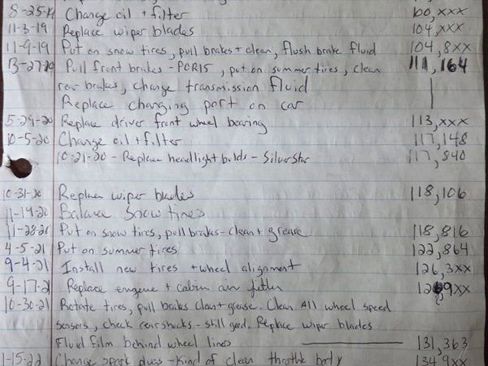 8-25-19 Change oil + filter 100,xxx
11-3-19 Replace wiper blades 104,xxx
11-9-19 Put on snow tires, pull brakes + clean, flush brake fluid 104,8xx
Pull front brakes - POR15, put on summer tires, clean 111,164
rear brakes, change transmission fluid
Replace charging port on car
5-29-20 Replace driver front wheel bearing 113,xxx
10-5-20 Change oil + filter 117,148
10-21-20 - Replace headlight bulbs - SilverStar 117,840
10-31-20 Replace wiper blades 118,106
11-14-20 Balance snow tires
11-28-20 Put on snow tires, pull brakes - clean + grease 118,816
4-5-21 Put on summer tires 122,864
9-4-21 Install new tires + wheel alignment 126,3xx
9-17-2 Replace engine + cabin air filter
10-30-21 Rotate tires, pull brakes clean + grease. Clean All wheel speed
sensors, check rear shocks - still good. Replace wiper blades
Fluid film behind wheel liners 131,363
1-15-22 Change spark plugs - kind of clean throttle body 134,9xx